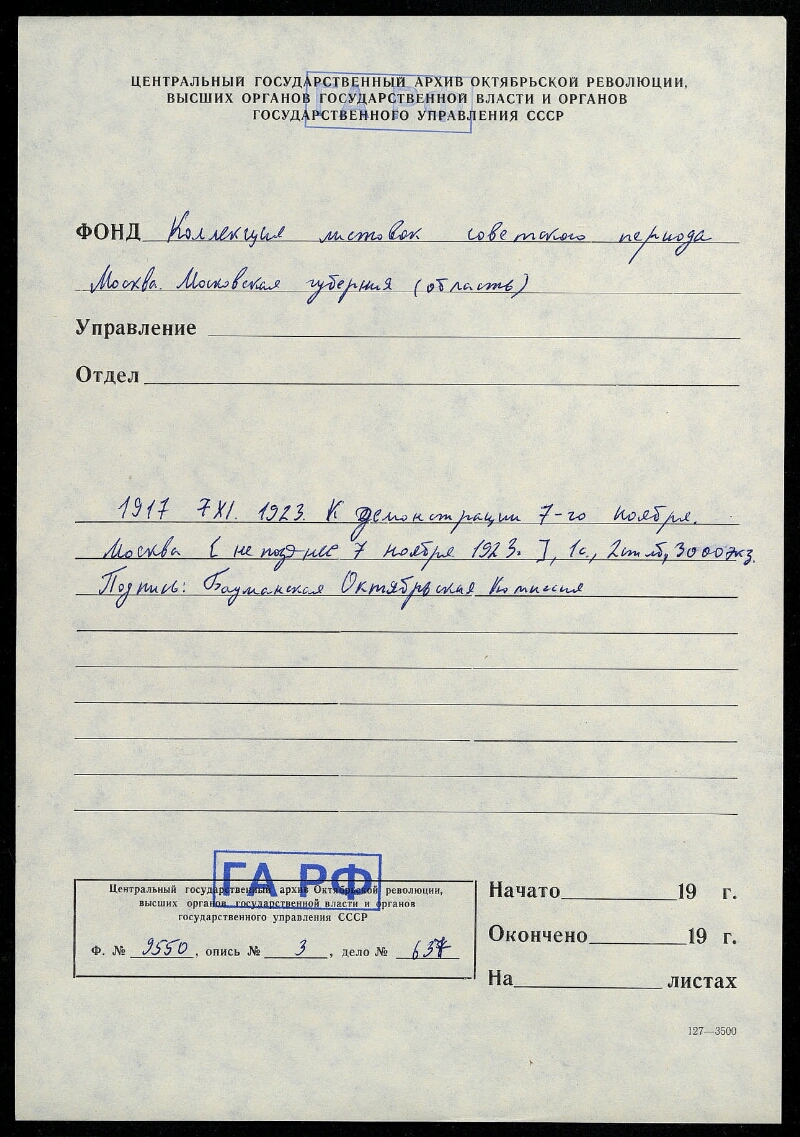 ЦЕНТРАЛЬНЫЙ ГОСУДАРСТВЕННЫЙ АРХИВ ОКТЯБРЬСКОЙ РЕВОЛЮЦИИ,
ВЫСШИХ ОРГАНОВ ГОСУДАРСТВЕННОЙ ВЛАСТИ И ОРГАНОВ
ГОСУДАРСТВЕННОГО УПРАВЛЕНИЯ СССР
ГА РФ
ФОНД Коллекция листовок советского периода
Москва. Московская губерния (область)
Управление
Отдел
1917 7 XI. 1923. К демонстрации 7-го ноября.
Москва [не позднее 7 ноября 1923г.], 1с., 2стлб, 3000экз.
Подпись: Бауманская Октябрьская Комиссия
ГА РФ
Центральный государственный архив Октябрьской революции,
высших органов государственной власти и органов
государственного управления СССР
Ф. № 9550, опись № 3, дело № 637
Начато 19 г.
Окончено 19 г.
На листах
127—3500